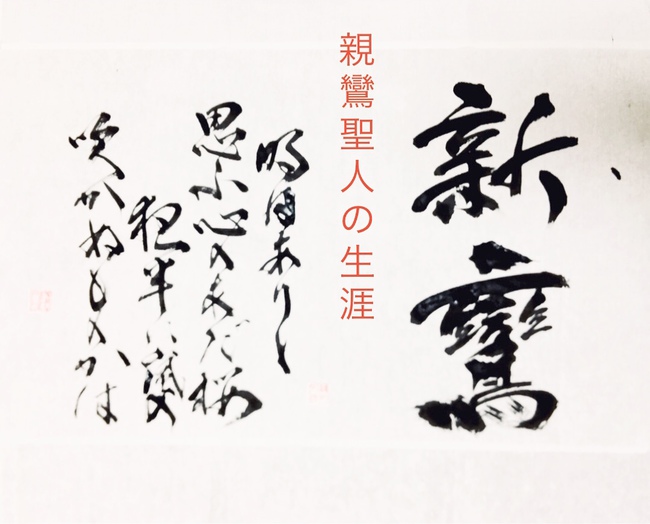 新鸞
親鸞聖人の生涯
明日ありと
思ふ心のあだ桜
夜半に嵐の
吹かぬものかは